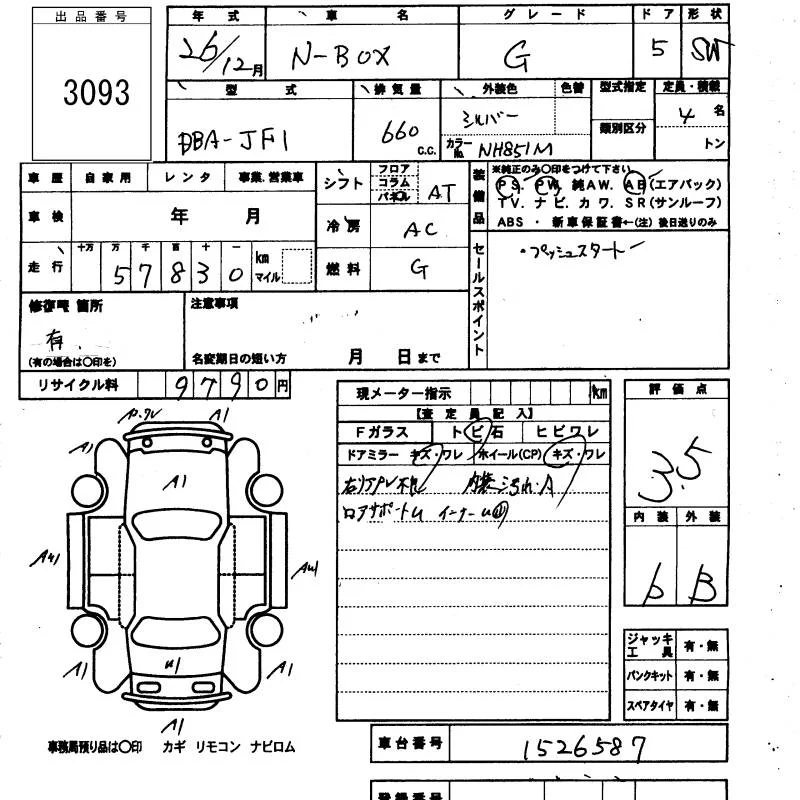 出品番号
3093
年式 車名 グレード ドア 形状
26/12月 N-BOX G 5 SW
型式 排気量 外装色 色替 型式指定 定員・積載
DBA-JF1 660 c.c. シルバー 類別区分 4名
カラーNo. NH851M トン
車歴 自家用 レンタ 事業.営業車
シフト フロア コラム パネル AT
装備品 ※純正のみ〇印をつけて下さい
PS. PW. 純AW. AB(エアバック)
TV. ナビ. カワ. SR(サンルーフ)
ABS ・ 新車保証書←(注) 後日送りのみ
車検 年 月
冷房 AC
走行 十万 万 千 百 十 一 km マイル
57830
燃料 G
セールスポイント
・プッシュスタート
修復歴 箇所
有
(有の場合は〇印を)
注意事項
名変期日の短い方 月 日まで
リサイクル料 9790円
現メーター指示 km
【査定員記入】
Fガラス トビ石 ヒビワレ
ドアミラー キズ・ワレ ホイール(CP) キズ・ワレ
内装 A
ロアサポートU インナーU
評価点
3.5
内装 外装
B
ジャッキ工具 有・無
パンクキット 有・無
スペアタイヤ 有・無
A1
A1
A1
U1
A1
A1
A1
事務局預り品は〇印 カギ リモコン ナビロム
車台番号 1526587
登録番号